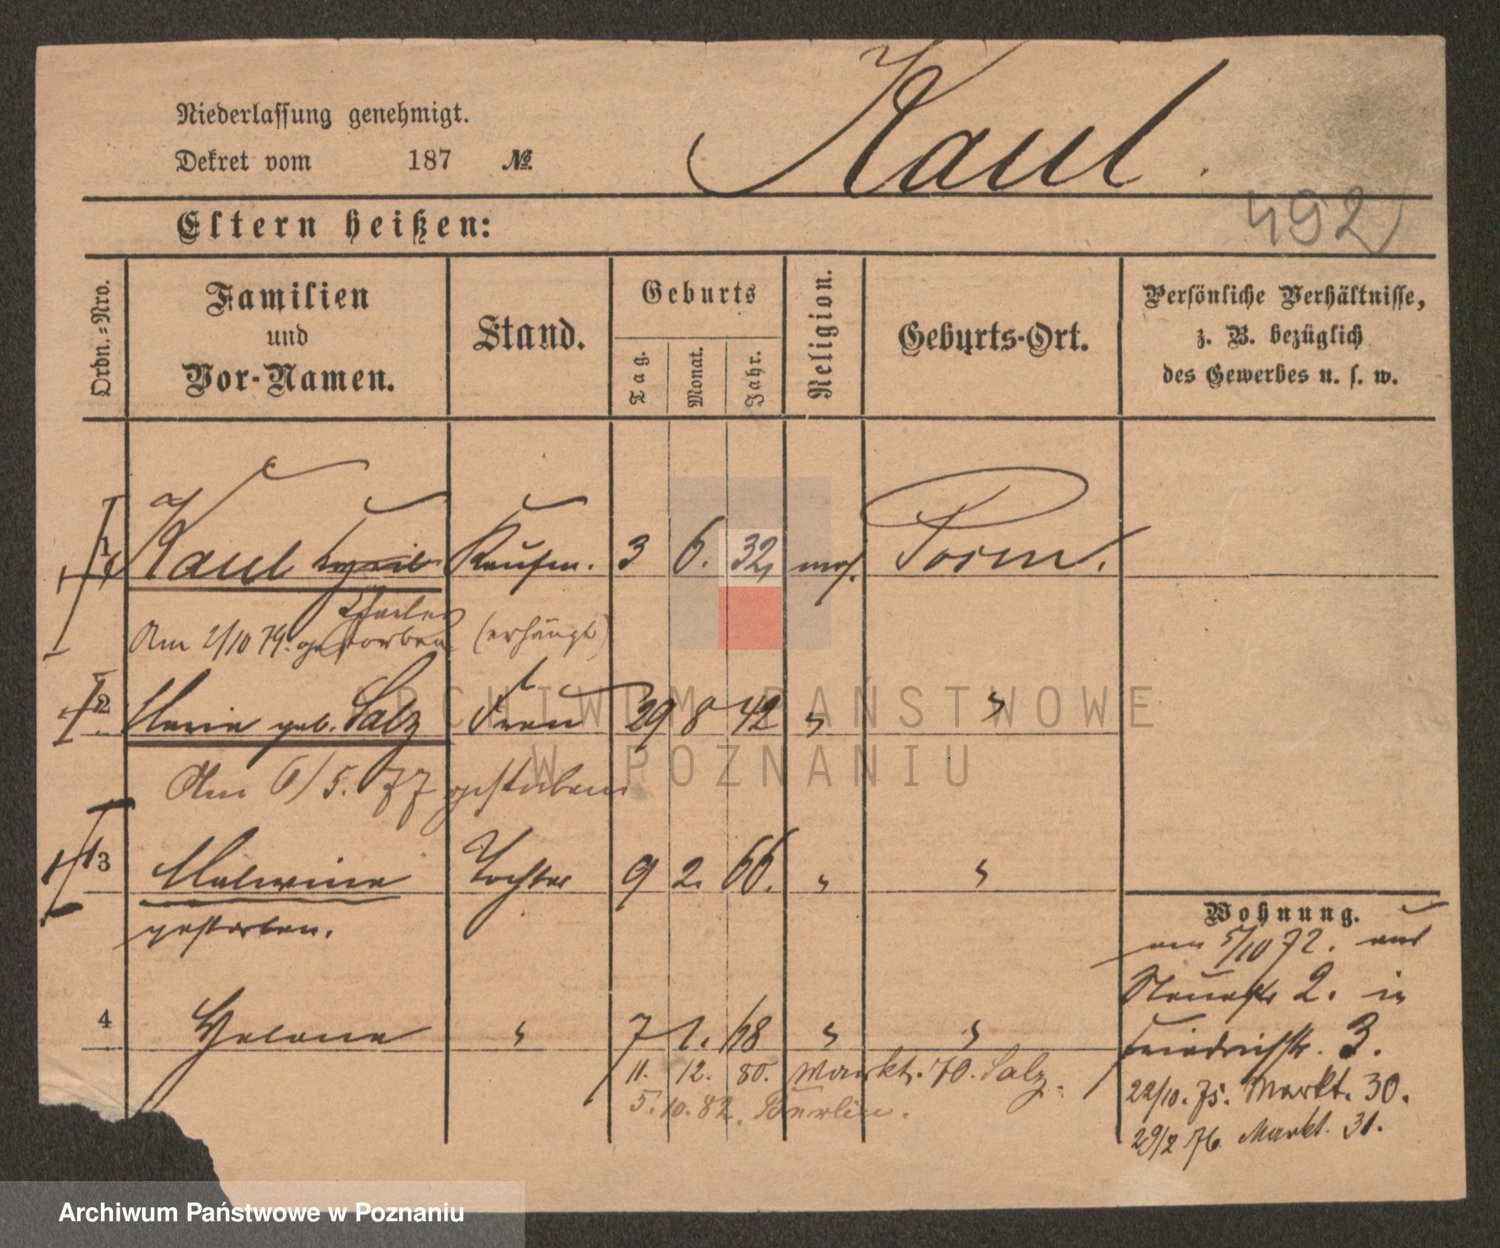 Niederlassung genehmigt.
Dekret vom 187 №
Kaul.
492
Eltern heißen:
Ordn.=Nro.
Familien
und
Vor-Namen.
Stand.
Geburts
Tag.
Monat.
Jahr.
Religion.
Geburts-Ort.
Persönliche Verhältnisse,
z. B. bezüglich
des Gewerbes u. s. w.
1 Kaul Kaufm. 3 6. 32, mos. Posen.
Am 2/10 74. gestorben (erhängt)
2 Marie geb. Salz Frau 29 8 42 " "
Am 6/5. 77 gestorben
3 Malwine Tochter 9 2. 66. " "
gestorben.
4 Helene " 7 1. 68 " "
11. 12. 80. Markt. 70. Salz.
5. 10. 82. Berlin.
Wohnung.
am 5/10 72. aus
Neuestr 2. in
Friedrichstr. 3.
22/10. 75. Markt. 30.
29/2 76 Markt. 31.
ARCHIWUM PAŃSTWOWE
W POZNANIU
Archiwum Państwowe w Poznaniu